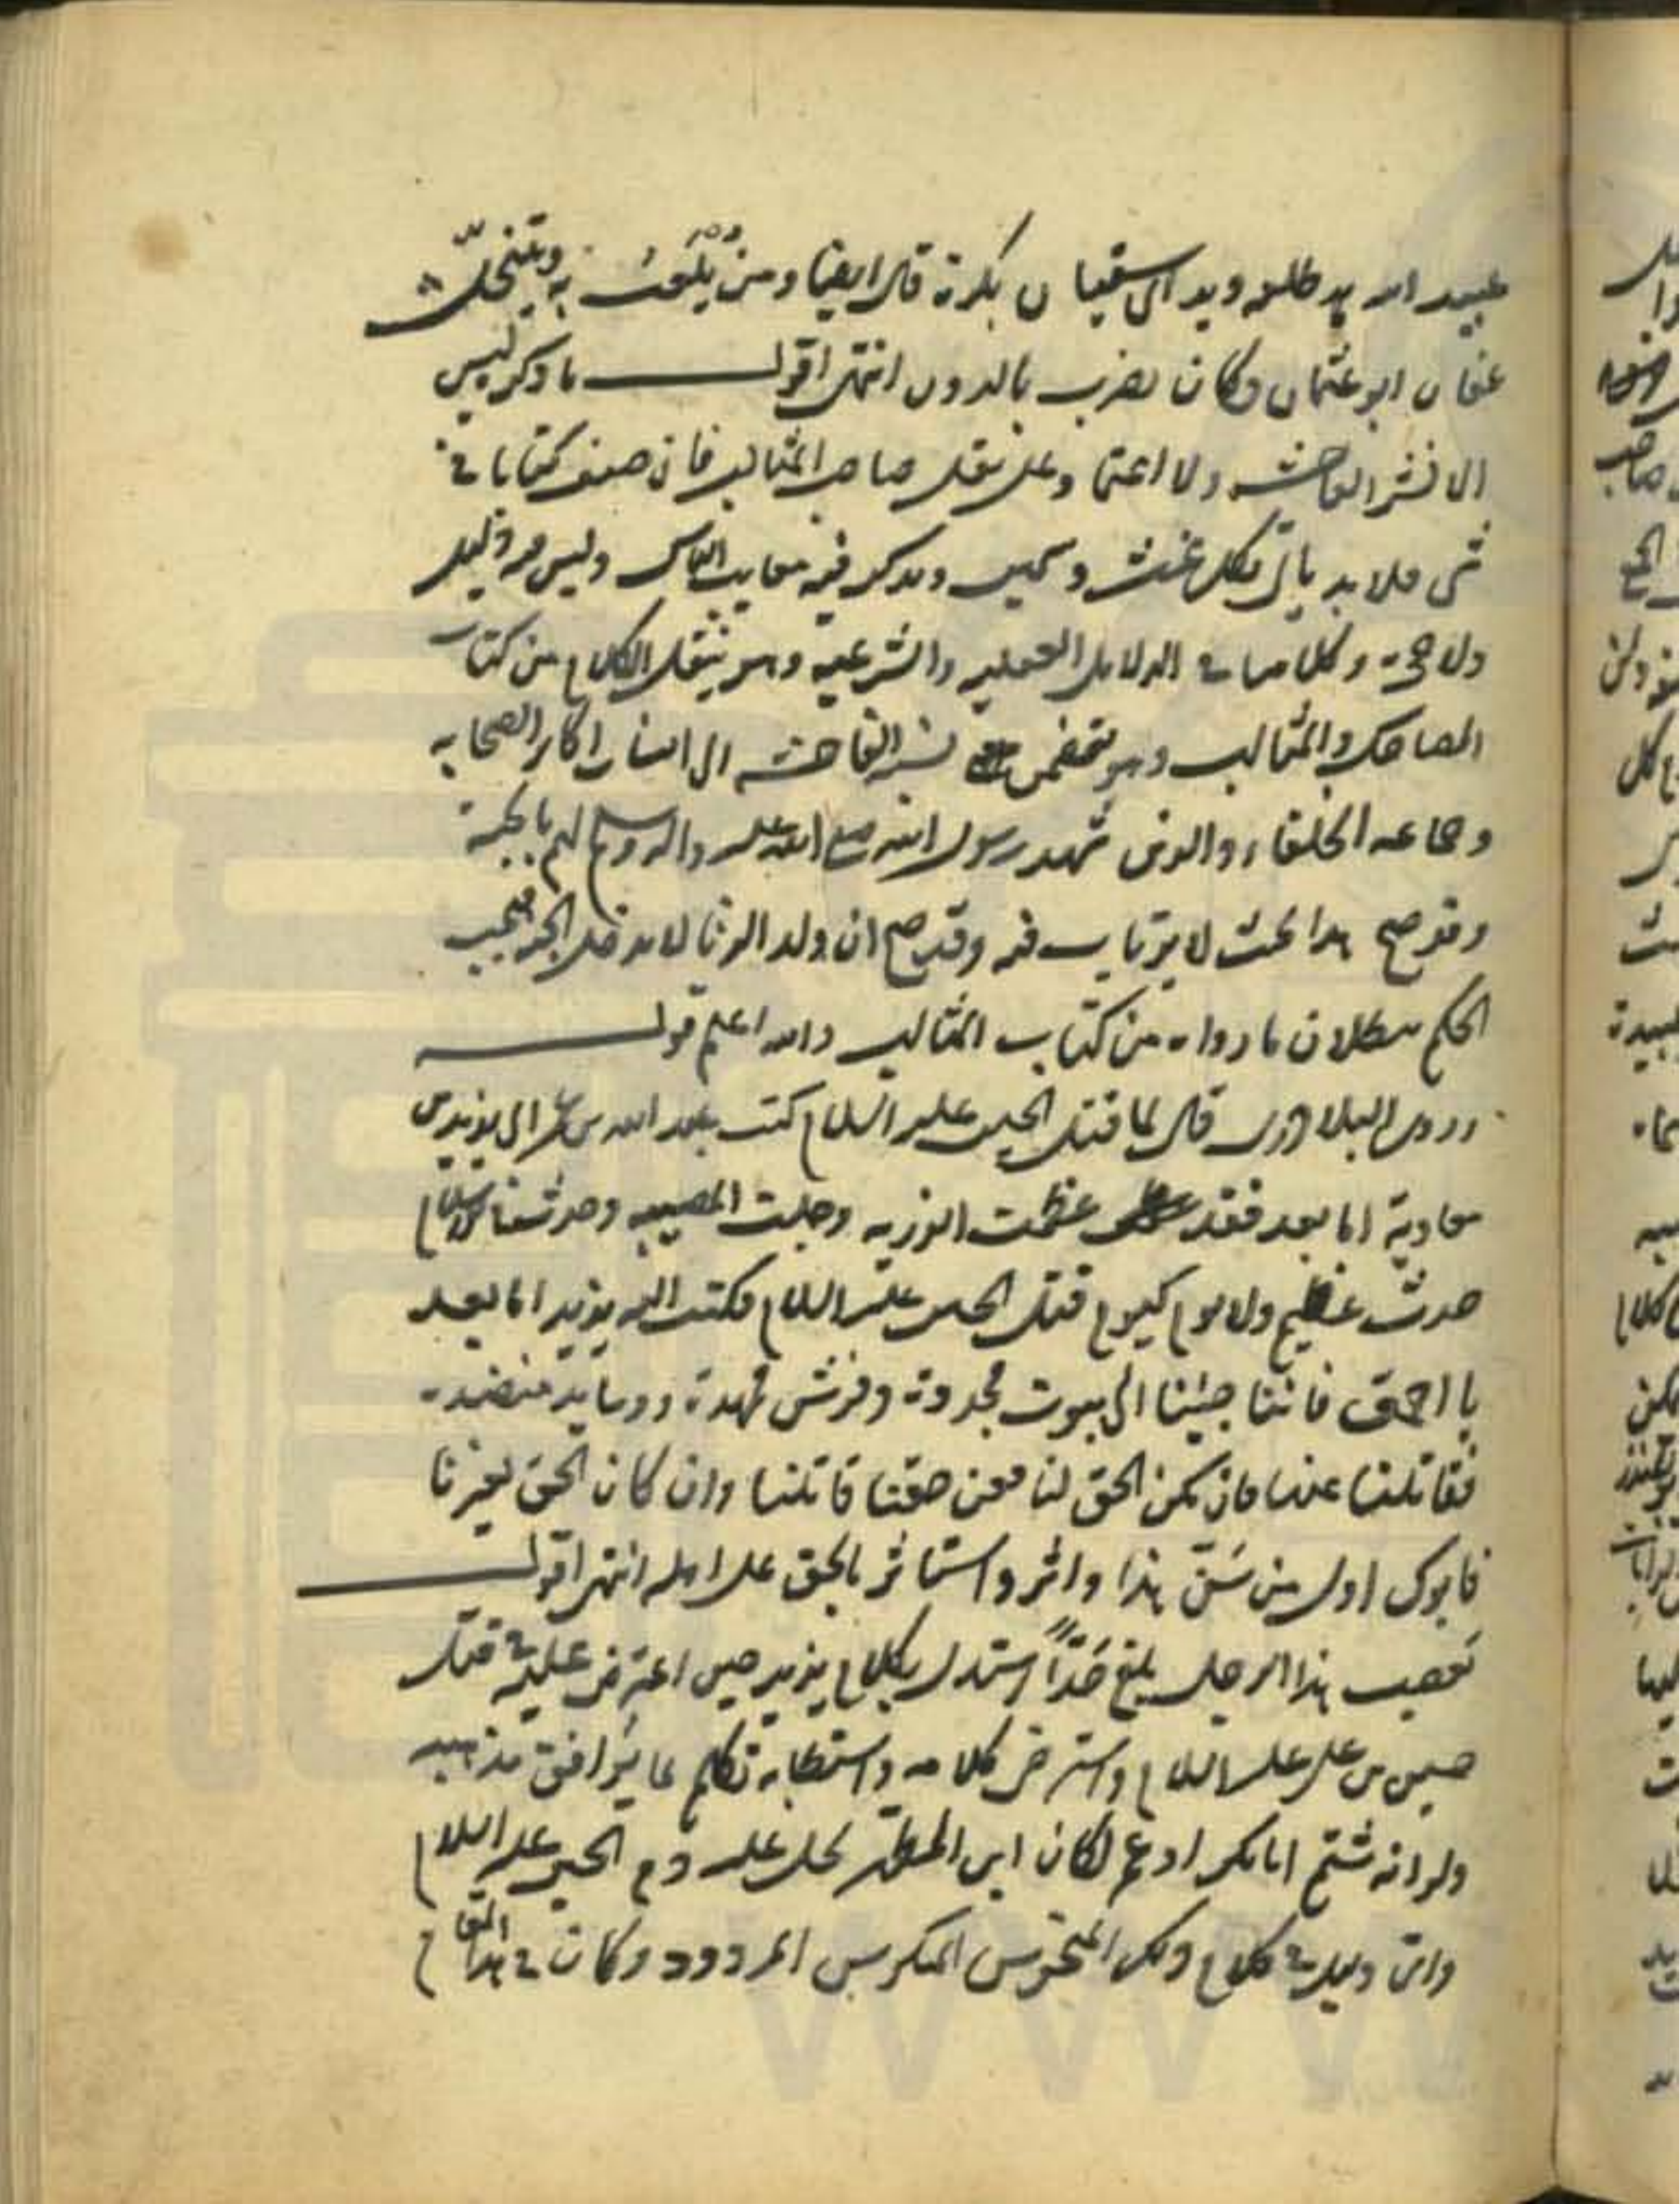 عبيد الله يد طلحه ويد ابى سفيان بكرة قال ايضا وممن يُلْعَبُ به ويتخنّث
عفان ابو عثمان وكان يضرب بالدف انتهى اقول ما ذكر ليس
الا نشر الفاحشه ولا اعتماد على نقل صاحب المثالب فان من صنف كتابا في
شى فلا بد ياتى بكل غث وسمين ويذكر فيه معايب الناس وليس فيه دليل
ولا حجة وكلامنا في الدلايل العقليه والشرعيه وهو ينقل الكلام من كتاب
المضاحك والمثالب وهو يتضمن نسبة الفاحشه الى انساب اكابر الصحابه
وجماعه الخلفاء والذين شهد رسول الله صلى الله عليه واله وسلم لهم بالجنة
وقد صح هذا بحيث لا يرتاب فيه وقد صح ان ولد الزنا لا يدخل الجنة فيجب
الحكم ببطلان ما رواه من كتاب المثالب والله اعلم قوله
وروى البلاذرى قال لما قتل الحسين عليه السلام كتب عبد الله بن عمر الى يزيد بن
معاوية اما بعد فقد عظمت الرزيه وجلت المصيبه وحدث فى الاسلام
حدث عظيم ولا يوم كيوم قتل الحسين عليه السلام فكتب اليه يزيد اما بعد
يا احمق فاننا جئنا الى بيوت مجددة وفرش ممهدة ووسايد منضدة
فقاتلنا عنها فان يكن الحق لنا فعن حقنا قاتلنا وان كان الحق لغيرنا
فابوك اول من سَنّ هذا واثر واستاثر بالحق على اهله انتهى اقول
تعصب هذا الرجل بلغ حَدّاً استدل بكلام يزيد حين اعترض عليه في قتل
حسين بن على عليه السلام واسترضى كلامه واستطابه تكلم بما يوافق مذهبه
ولو انه شتم ابا بكر او عمر لكان ابن المطهر يحل عليه دم الحسين عليه السلام
واى دليل في كلام ذلك المردود وكان في هذا المقام